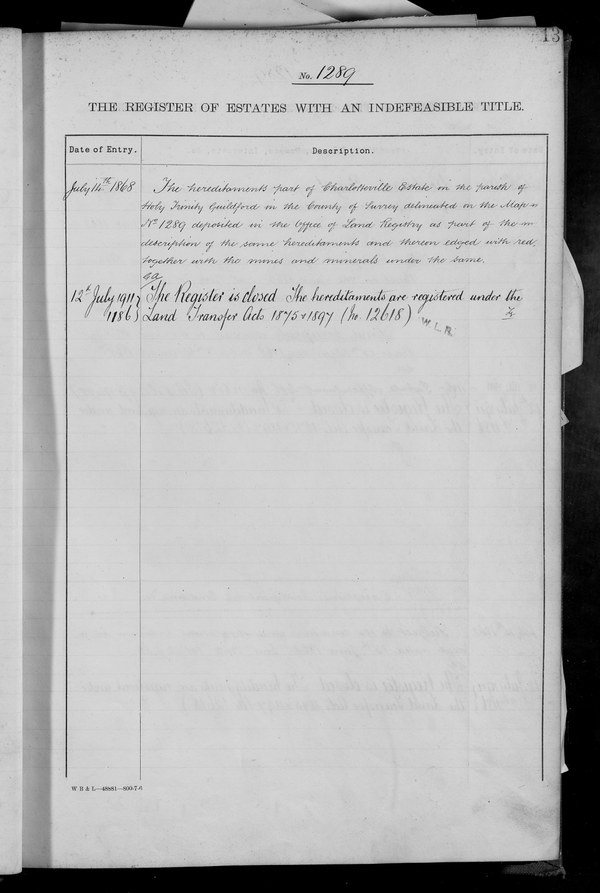 13
No. 1289
THE REGISTER OF ESTATES WITH AN INDEFEASIBLE TITLE.
Date of Entry. Description.
July 14th 1868 The hereditaments part of Charlotteville Estate in the parish of
Holy Trinity Guildford in the County of Surrey delineated on the Map
No 1289 deposited in the Office of Land Registry as part of the
description of the same hereditaments and therein edged with red,
together with the mines and minerals under the same.
12th July 1911 The Register is closed The hereditaments are registered under the
1186 Land Transfer Acts 1875 & 1897 (No. 12618)
W B & L—48881—800-7-6